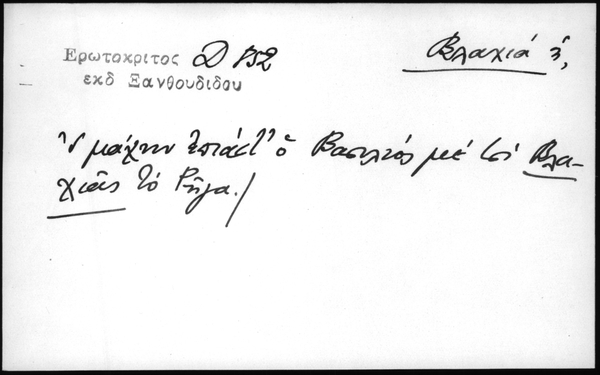 Ερωτοκριτος Δ 852
εκδ Ξανθουδιδου
Βλαχιά ἡ,
'ς μάχην ἐπιάστ' ὁ Βασιλιός μὲ τσῆ Βλα-
χιᾶς τὸ Ρήγα./